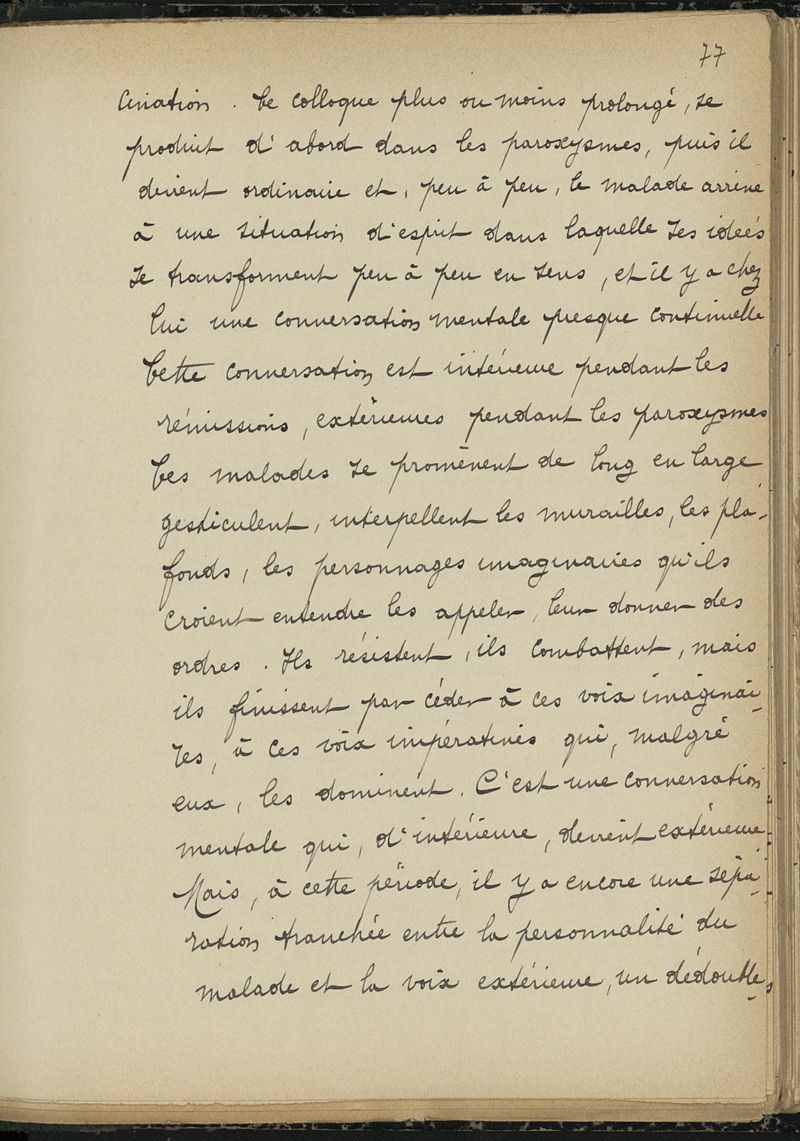 77
cination. Ce colloque plus ou moins prolongé, se
produit d'abord dans les paroxysmes, puis il
devient ordinaire et, peu à peu, le malade arrive
à une situation d'esprit dans laquelle ses idées
se transforment peu à peu en sens, et il y a chez
lui une conversation mentale presque continuelle
Cette conversation est intérieure pendant les
rémissions, extérieures pendant les paroxysmes
Ces malades se promènent de long en large
gesticulent, interpellent les murailles, les pla-
fonds, les personnages imaginaires qu'ils
croient entendre les appeler, leur donner des
ordres. Ils résistent, ils combattent, mais
ils finissent par céder à ces voix imaginai-
res, à ces voix impératives qui, malgré
eux, les dominent. C'est une conversation
mentale qui, d'intérieure, devient extérieure.
Mais, à cette période, il y a encore une sépa-
ration tranchée entre la personnalité du
malade et la voix extérieure, un dédouble-